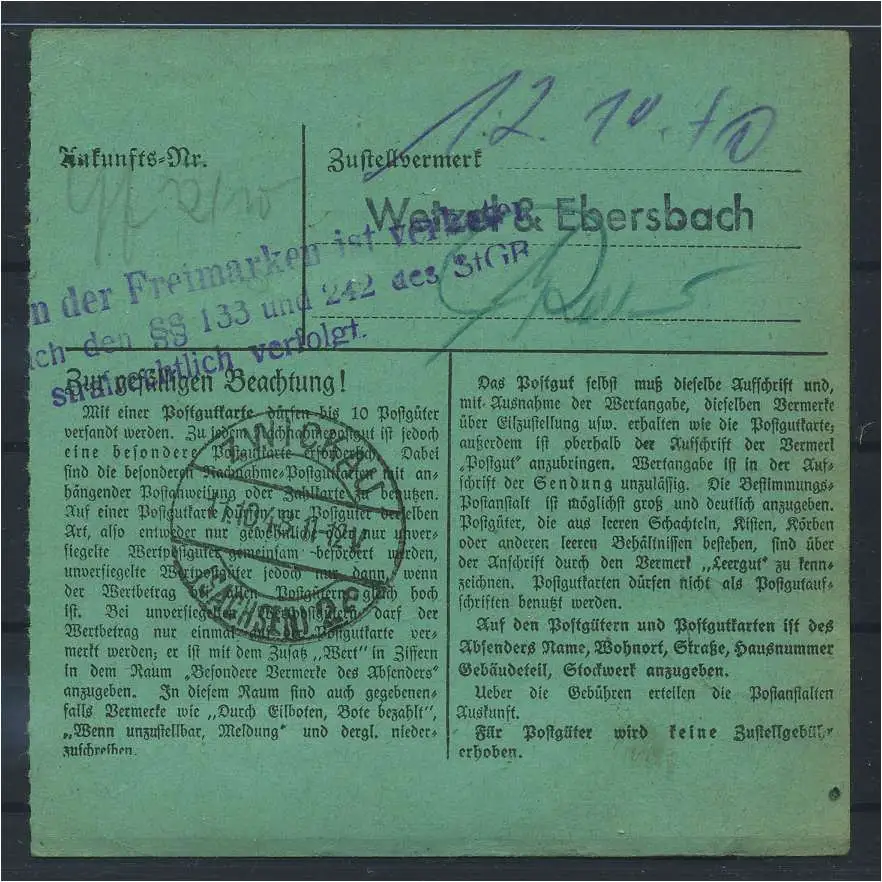 12. 10.
Ankunfts-Nr.
Zustellvermerk
Wetzel & Ebersbach
n der Freimarken ist verboten
ach den §§ 133 und 242 des StGB
strafrechtlich verfolgt.
Zur gefälligen Beachtung!
Mit einer Postgutkarte dürfen bis 10 Postgüter
versandt werden. Zu jedem Nachnahmepostgut ist jedoch
eine besondere Postgutkarte erforderlich. Dabei
sind die besonderen Nachnahme-Postgutkarten mit an-
hängender Postanweisung oder Zahlkarte zu benutzen.
Auf einer Postgutkarte dürfen nur Postgüter derselben
Art, also entweder nur gewöhnliche oder nur unver-
siegelte Wertpostgüter gemeinsam befördert werden,
unversiegelte Wertpostgüter jedoch nur dann, wenn
der Wertbetrag bei allen Postgütern gleich hoch
ist. Bei unversiegelten Wertpostgütern darf der
Wertbetrag nur einmal auf der Postgutkarte ver-
merkt werden; er ist mit dem Zusatz „Wert" in Ziffern
in dem Raum „Besondere Vermerke des Absenders"
anzugeben. In diesem Raum sind auch gegebenen-
falls Vermerke wie „Durch Eilboten, Bote bezahlt",
„Wenn unzustellbar, Meldung" und dergl. nieder-
zuschreiben.
ZWICKAU
(SACHSEN)
Das Postgut selbst muß dieselbe Aufschrift und,
mit Ausnahme der Wertangabe, dieselben Vermerke
über Eilzustellung usw. erhalten wie die Postgutkarte;
außerdem ist oberhalb der Aufschrift der Vermerk
„Postgut" anzubringen. Wertangabe ist in der Auf-
schrift der Sendung unzulässig. Die Bestimmungs-
Postanstalt ist möglichst groß und deutlich anzugeben.
Postgüter, die aus leeren Schachteln, Kisten, Körben
oder anderen leeren Behältnissen bestehen, sind über
der Anschrift durch den Vermerk „Leergut" zu kenn-
zeichnen. Postgutkarten dürfen nicht als Postgutauf-
schriften benutzt werden.
Auf den Postgütern und Postgutkarten ist des
Absenders Name, Wohnort, Straße, Hausnummer
Gebäudeteil, Stockwerk anzugeben.
Ueber die Gebühren erteilen die Postanstalten
Auskunft.
Für Postgüter wird keine Zustellgebühr
erhoben.